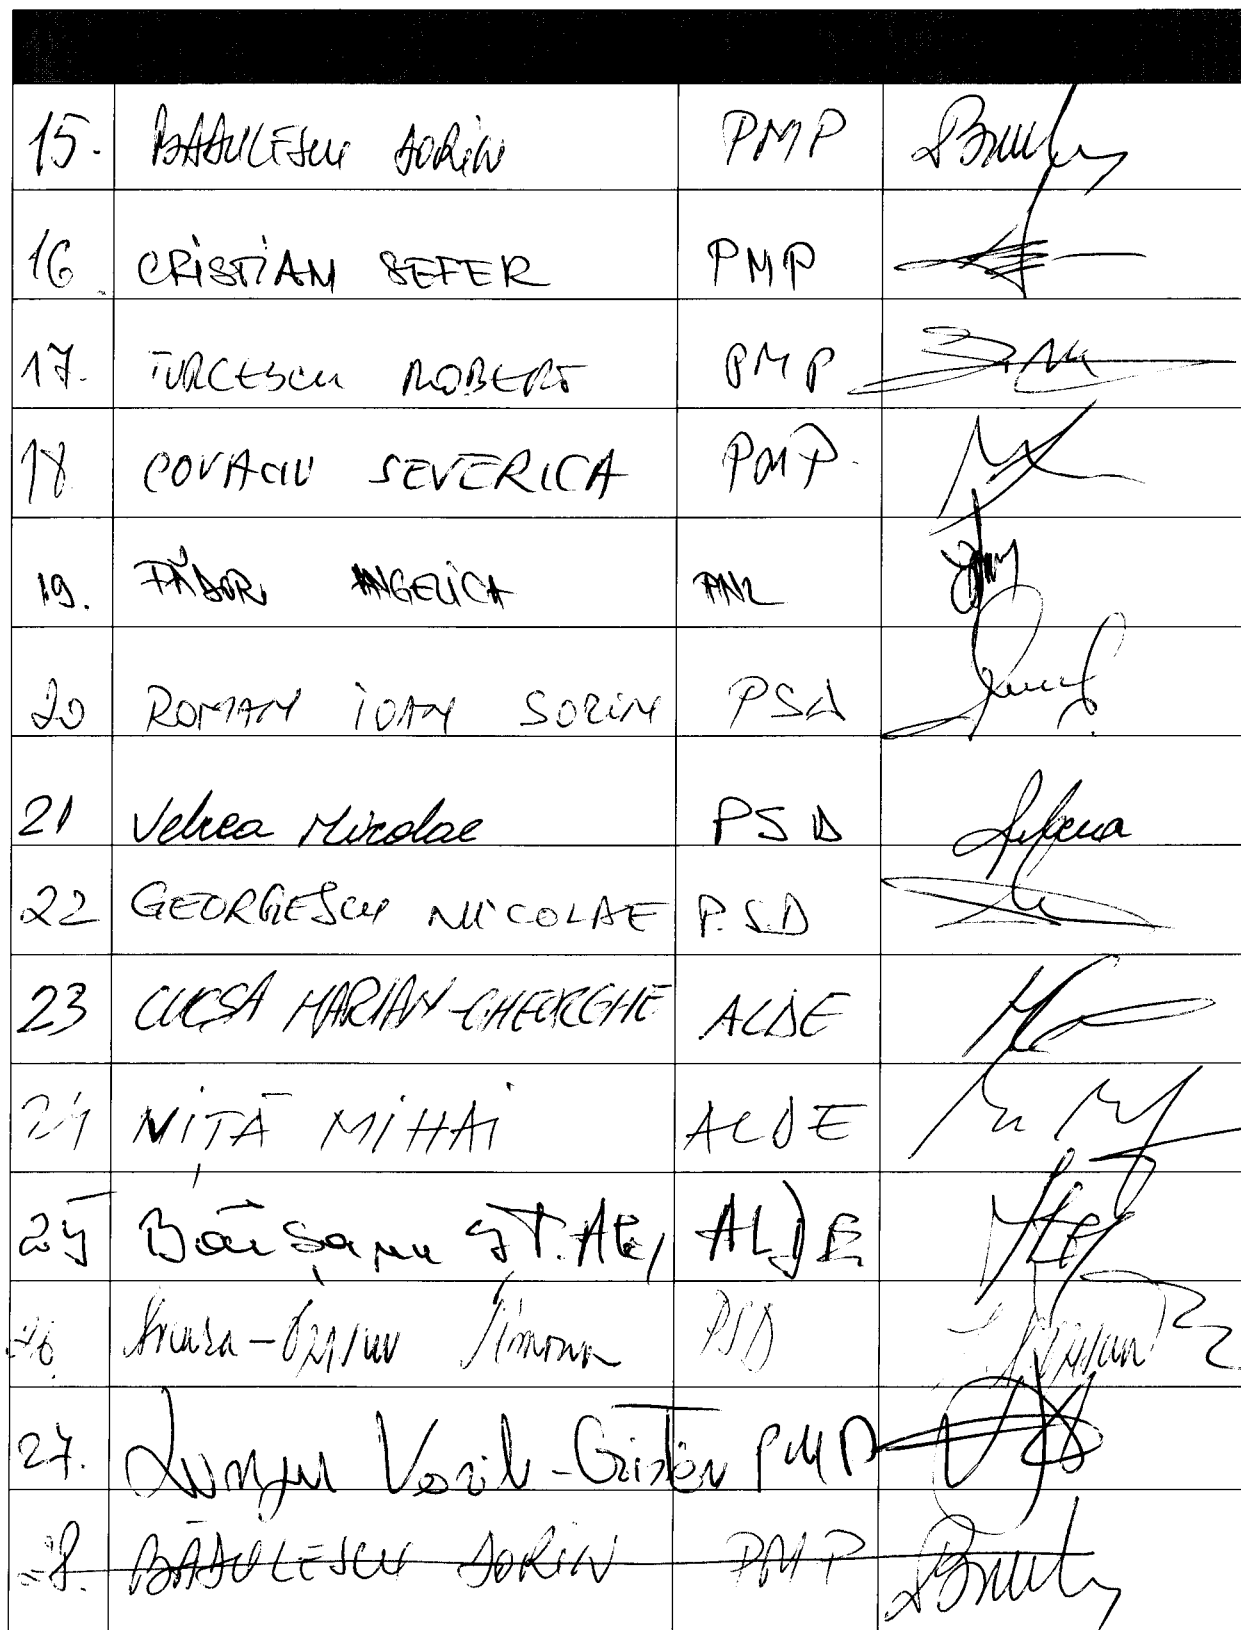 15. BĂDULESCU DORIN PMP
16. CRISTIAN SEFER PMP
17. TURCESCU ROBERT PMP
18 COVACIU SEVERICA PMP.
19. FĂDOR ANGELICA PNL
20 ROMAN IOAN SORIN PSD
21 Velcea Nicolae PSD
22 GEORGESCU NICOLAE P.S.D
23 CUCSA MARIAN-GHEORGHE ALDE
24 NIȚĂ MIHAI ALDE
25 ȘT. Al, ALDE
26. Simona PSD
27. Lungu Vasile-Cristian PMP
28. BĂDULESCU DORIN PMP